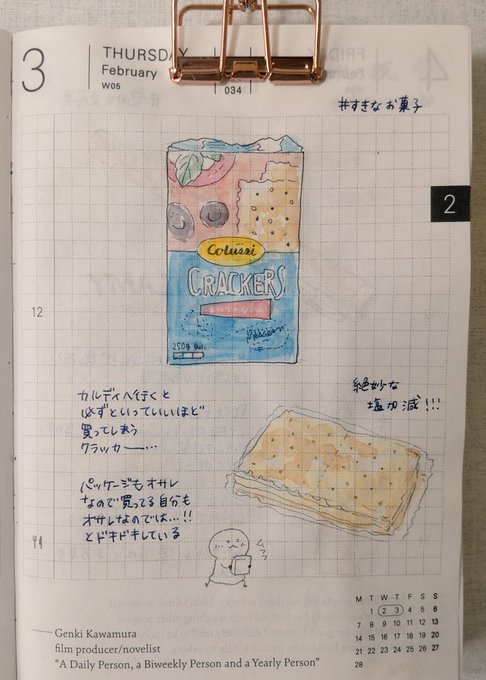 3
THURSDAY
February
W05
034
#すきなお菓子
2
Colussi
CRACKERS
250g
12
カルディへ行くと
必ずといっていいほど
買ってしまう
クラッカー…
絶妙な
塩加減!!!
パッケージもオサレ
なので買ってる自分も
オサレなのでは…!!
とドキドキしている
ムフフ
M T W T F S S
1 2 3 4 5 6
7 8 9 10 11 12 13
14 15 16 17 18 19 20
21 22 23 24 25 26 27
28
Genki Kawamura
film producer/novelist
"A Daily Person, a Biweekly Person and a Yearly Person"